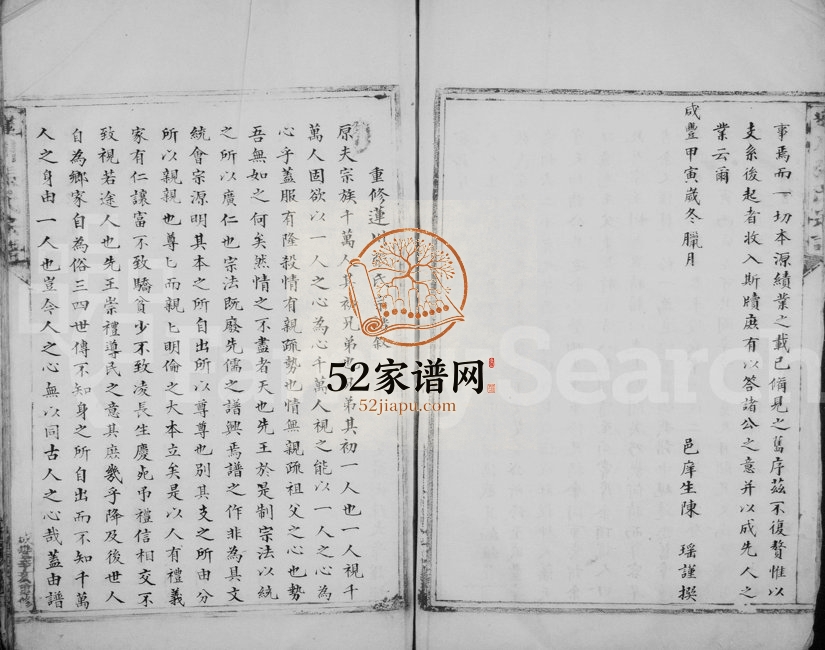 事焉而一切本源績業之載已備見之舊序茲不復贅惟以
支系後起者收入斯牘庶有以答諸公之意并以成先人之
業云爾
咸豐甲寅歲冬臘月
邑庠生陳 瑤謹撰
重修蓮川
原夫宗族千萬人其初兄弟也
弟其初一人也一人視千
萬人固欲以一人之心為心千萬人視之能以一人之心為
心乎蓋服有隆殺情有親疏勢也情無親疏祖父之心也勢
吾無如之何矣然情之不盡者天也先王於是制宗法以統
之所以廣仁也宗法既廢先儒之譜興焉譜之作非為具文
統會宗源明其本之所自出所以尊尊也別其支之所由分
所以親親也尊尊而親親明倫之大本立矣是以人有禮義
家有仁讓富不致驕貧少不致凌長生慶死弔禮信相交不
致視若途人也先王崇禮導民之意其庶幾乎降及後世人
自為鄉家自為俗三四世傳不知身之所自出而不知千萬
人之身由一人也豈令人之心無以同古人之心哉蓋由譜
52家谱网
52jiapu.com
Family Search